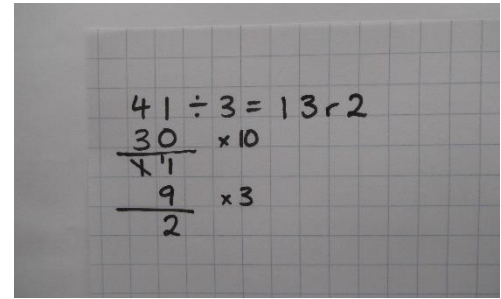 41 ÷ 3 = 13 r 2
30 ×10
11
9 ×3
2